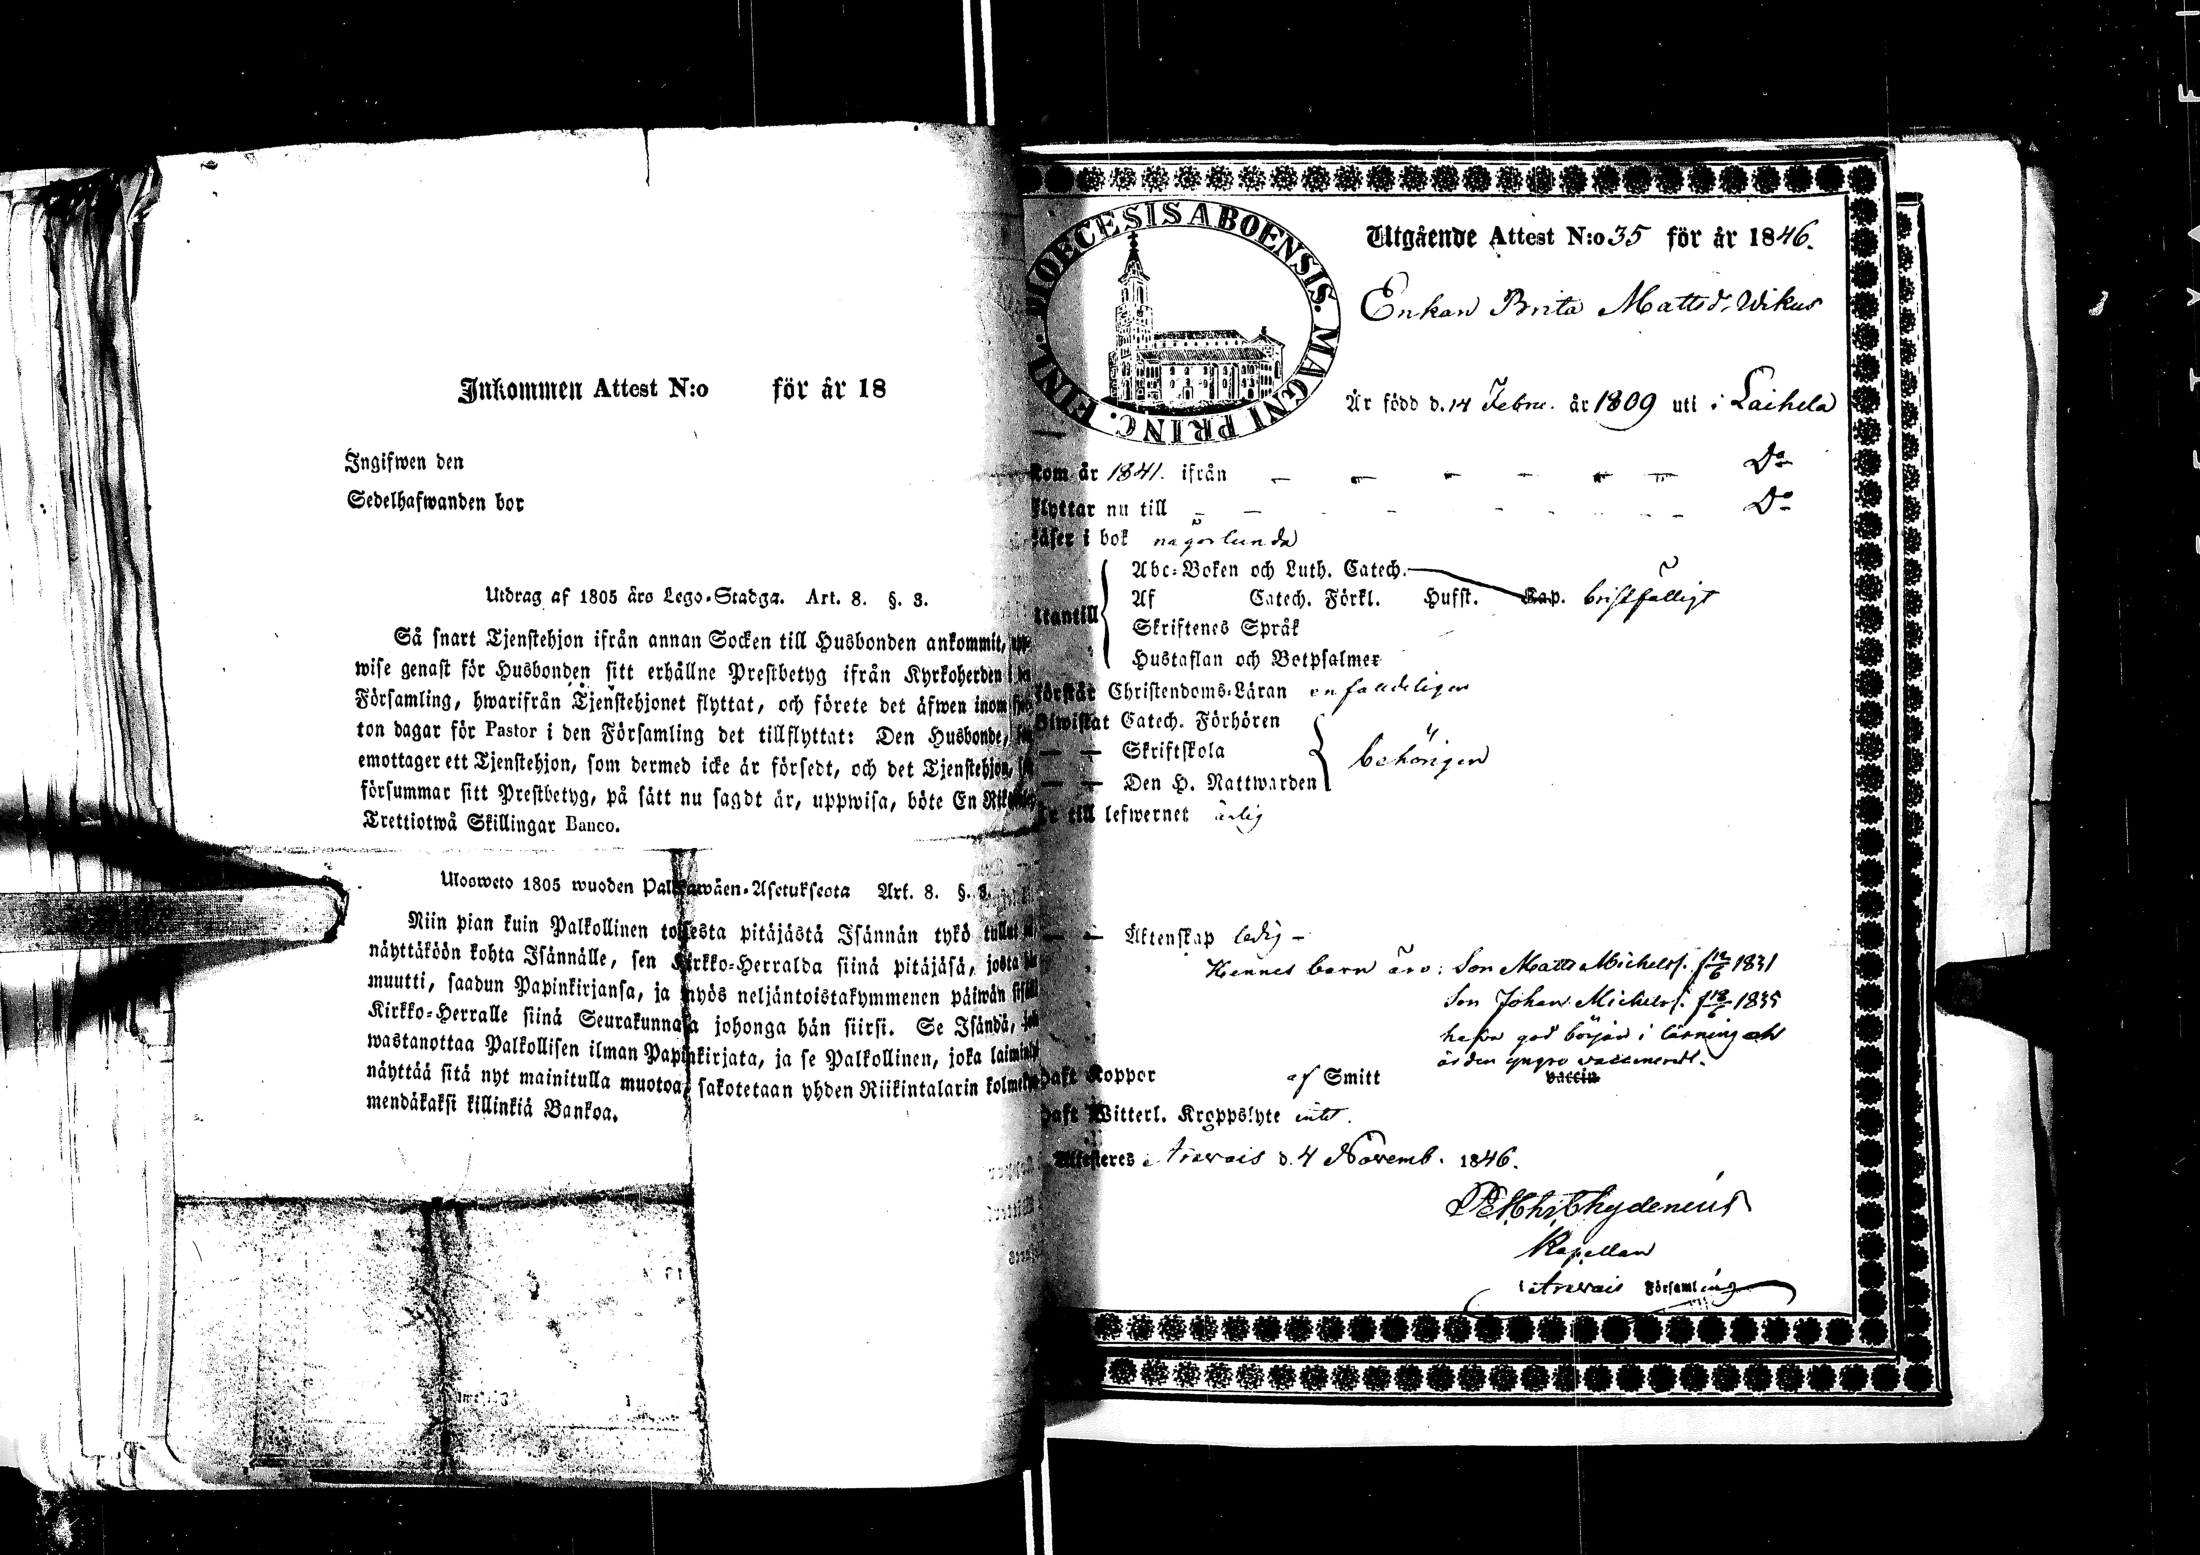 Inkommen Attest N:o för år 18
Ingifwen den
Sedelhafwanden bor
Utdrag af 1805 års Lego-Stadga. Art. 8. §. 3.
Så snart Tjenstehjon ifrån annan Socken till Husbonden ankommit,
wise genast för Husbonden sitt erhållne Prestbetyg ifrån Kyrkoherden i den
Församling, hwarifrån Tjenstehjonet flyttat, och förete det äfwen inom
ton dagar för Pastor i den Församling det tillflyttat: Den Husbonde,
emottager ett Tjenstehjon, som dermed icke är försedt, och det Tjenstehjon,
försummar sitt Prestbetyg, på sätt nu sagdt är, uppwisa, böte En
Trettiotwå Skillingar Banco.
Ulosweto 1805 wuoden Palkawäen-Asetuksesta Art. 8. §. 3.
Niin pian kuin Palkollinen toisesta pitäjästä Isännän tykö tullut
näyttäköön kohta Isännälle, sen Kirkko-Herralda siinä pitäjäsä, josta
muutti, saadun Papinkirjansa, ja myös neljäntoistakymmenen päiwän
Kirkko-Herralle siinä Seurakunnasa johonga hän siirsi. Se Isändä,
wastanottaa Palkollisen ilman Papinkirjata, ja se Palkollinen, joka
näyttää sitä nyt mainitulla muotoa, sakotetaan yhden Riikintalarin
mendäkaksi killinkiä Bankoa.
DIOECESIS ABOENSIS. MAGNI PRINC. FINL.
Utgående Attest N:o 35 för år 1846.
Enkan Brita Mattsd. Wikus
Är född d. 14 Febru. år 1809 uti i Laihela
Kom år 1841. ifrån Do
Flyttar nu till Do
Läser i bok någorlunda
Utantill
Abc-Boken och Luth. Catech.
Af Catech. Förkl. Husst. Kap. bristfälligt
Skriftenes Språk
Hustaflan och Botpsalmer
Förstår Christendoms-Läran enfaldeligen
Biwistat Catech. Förhören
— — Skriftskola behörigen
— — Den H. Nattwarden
Är till lefwernet ärlig
— — Äktenskap ledig –
Hennes barn äro: Son Matts Michelss. f 12/6 1831
Son Johan Michelss. f 1835
hafva god början i läsning och
är den yngre vaccinerad.
Haft Koppor af Smitt vaccin
Haft Witterl. Kroppslyte intet.
Attesteres Orawais d. 4 Novemb. 1846.
Chydenius
Kapellan
i Orawais Församling